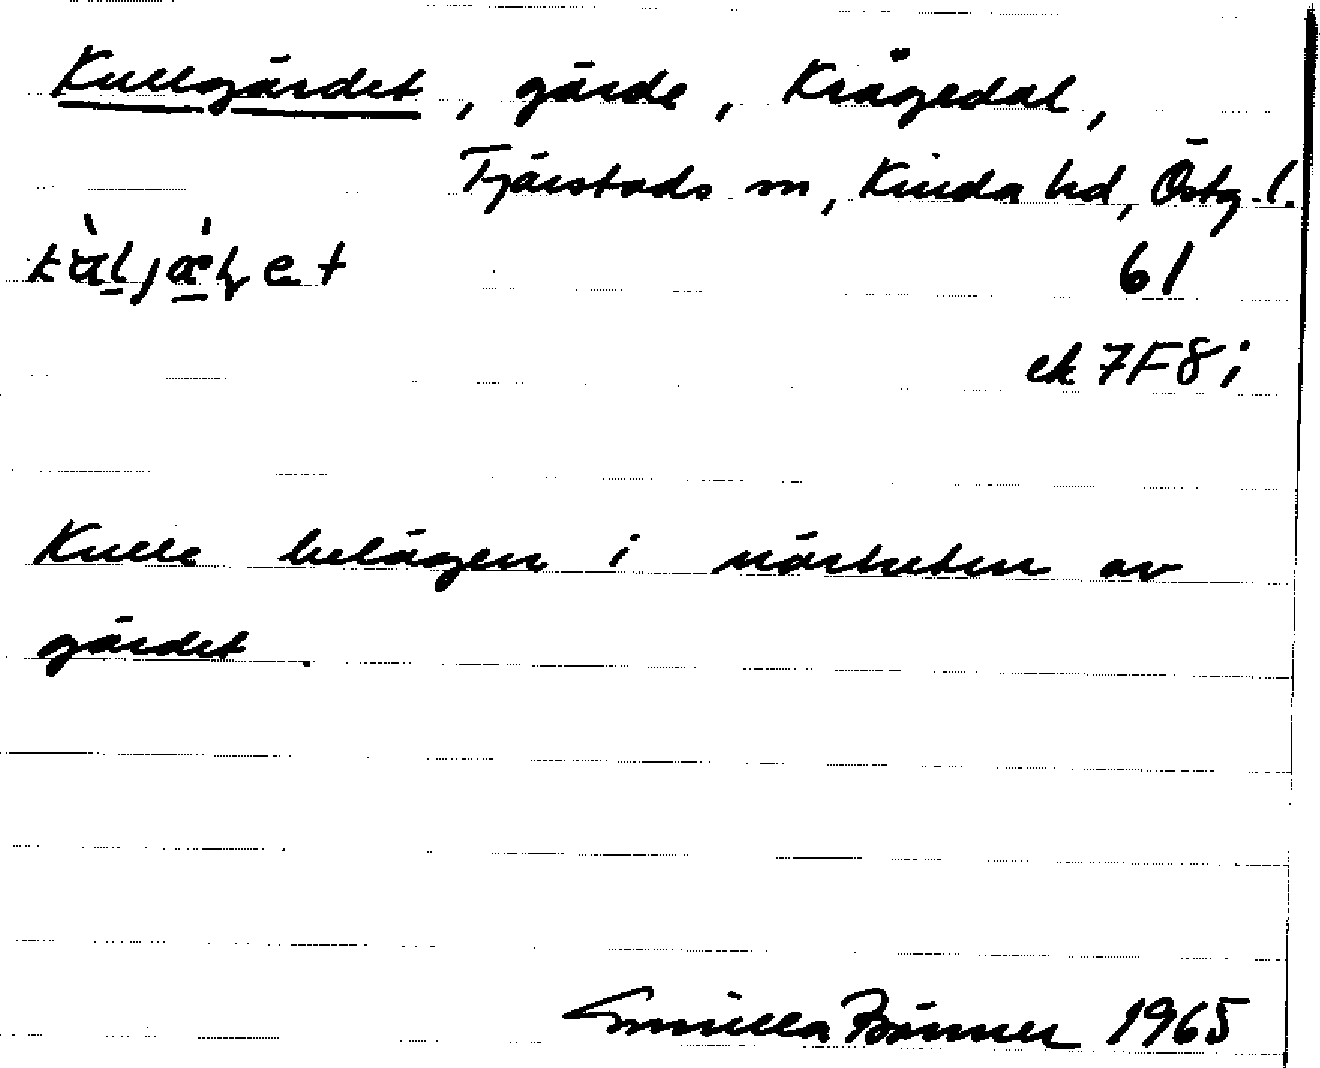 Kullgärdet, gärde, Krågedal,
Tjärstads sn, Kinda hd, Östg. l.
61
ek 7F8i
Kulle belägen i närheten av
gärdet.
Gunilla 1965